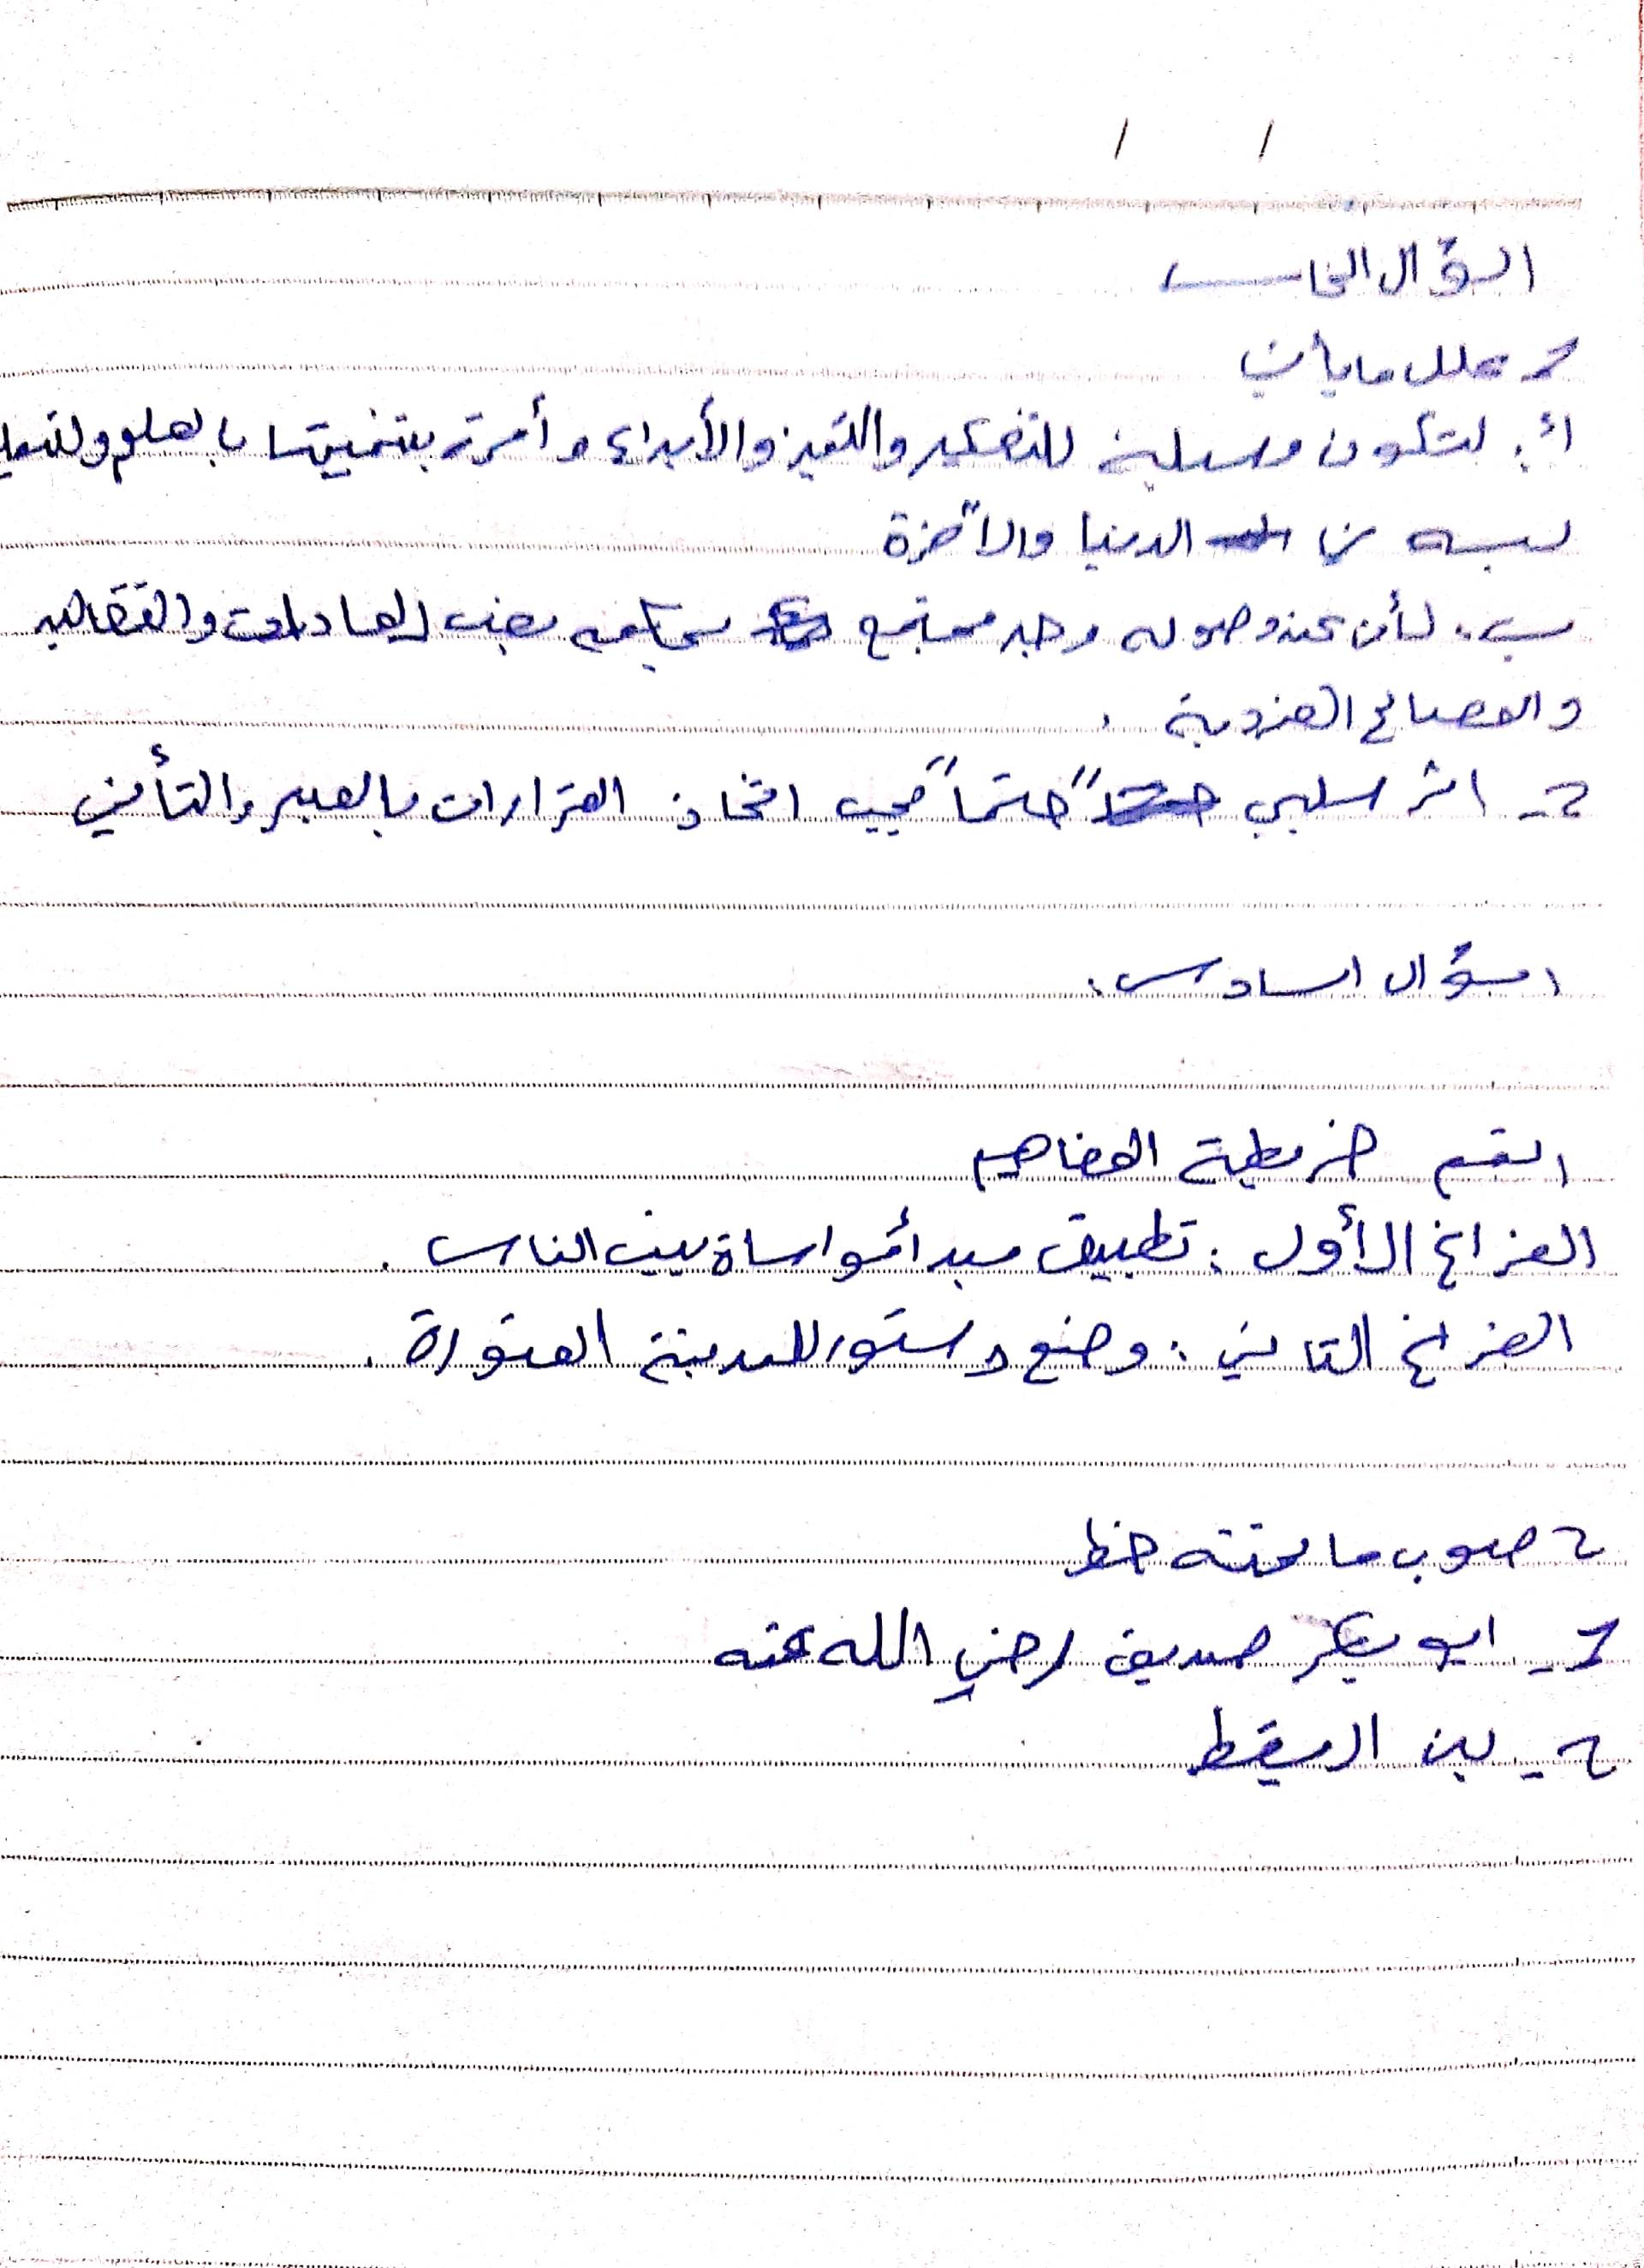 / /
السؤال الخامس
1 علل ما يأتي
أ: لتكون وسيلة للتفكير والتميز والأبداع وأمرته بتنميتها بالعلم والتعليم
الدنيا والآخرة
ب. لأن عند وصوله وجد مجتمع تحكمه بعض العادات والتقاليد
والمصالح الفردية .
2- اثر سلبي "حتماً" يجب اتخاذ القرارات بالصبر والتأني
السؤال السادس:
القسم خريطة المفاهيم
الفراغ الأول : تطبيق مبدأ المواساة بين الناس .
الفراغ الثاني : وضع دستور للمدينة المنورة .
2 صوب ما تحته خط
1- ابو بكر صديق رضي الله عنه
2- بن اريقط